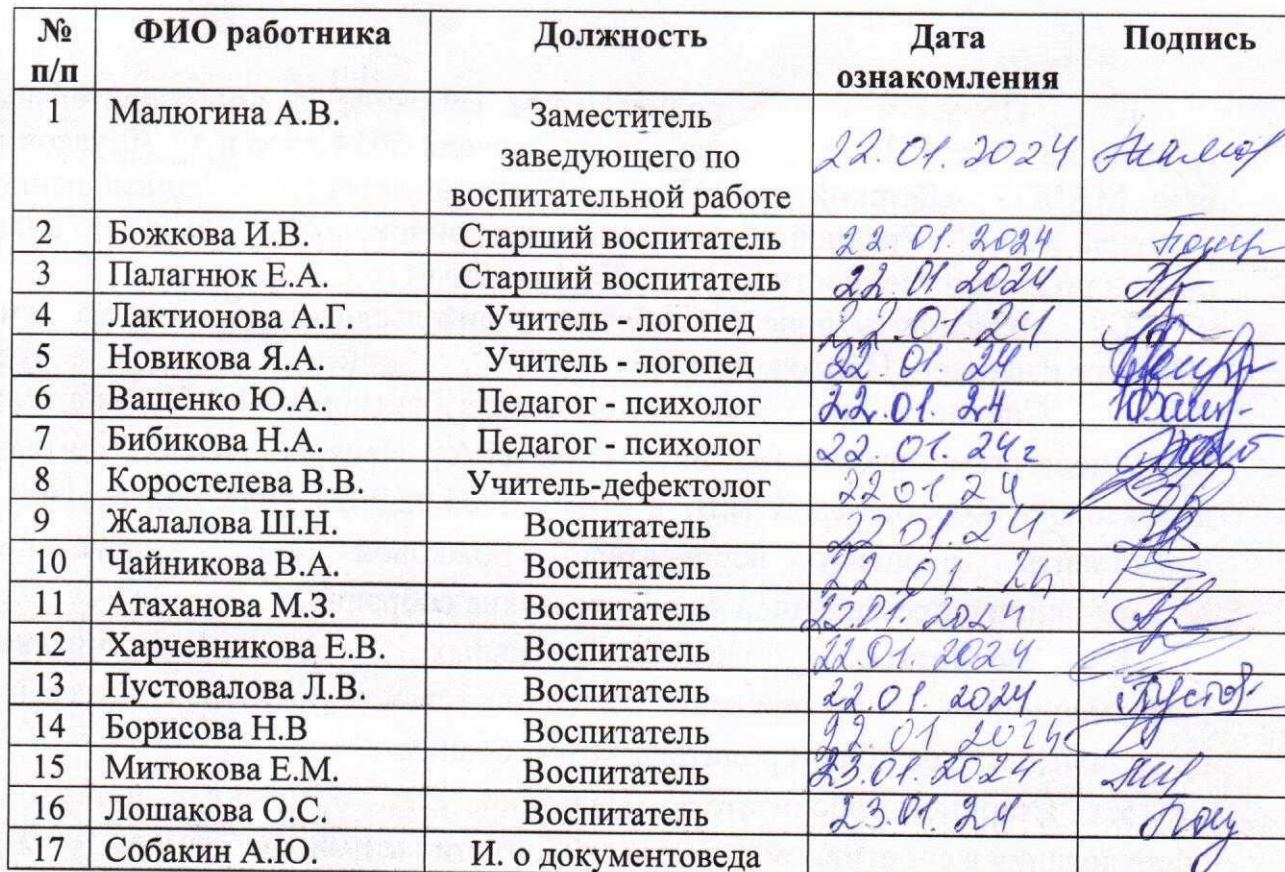 № п/п ФИО работника Должность Дата ознакомления Подпись
1 Малюгина А.В. Заместитель заведующего по воспитательной работе 22.01.2024
2 Божкова И.В. Старший воспитатель 22.01.2024
3 Палагнюк Е.А. Старший воспитатель 22.01.2024
4 Лактионова А.Г. Учитель - логопед 22.01.24
5 Новикова Я.А. Учитель - логопед 22 01. 24
6 Ващенко Ю.А. Педагог - психолог 22.01. 24
7 Бибикова Н.А. Педагог - психолог 22. 01.24г
8 Коростелева В.В. Учитель-дефектолог 22 01 24
9 Жалалова Ш.Н. Воспитатель 22.01.24
10 Чайникова В.А. Воспитатель 22 01 24
11 Атаханова М.З. Воспитатель 22.01.2024
12 Харчевникова Е.В. Воспитатель 22.01.2024
13 Пустовалова Л.В. Воспитатель 22.01. 2024
14 Борисова Н.В Воспитатель 22.01 2024
15 Митюкова Е.М. Воспитатель 23.01.2024
16 Лошакова О.С. Воспитатель 23.01. 24
17 Собакин А.Ю. И. о документоведа